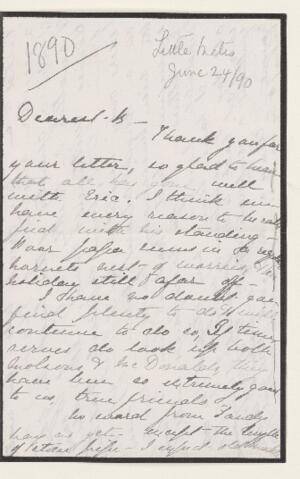 1890
Little Metis
June 24/90
Dearest B -
Thank you for
your letter, so glad to hear
that all has gone well
with Eric. I think we
have every reason to be
with his standing -
Poor papa seems in a
hornets nest of worries,
holiday still afar off -
I have no doubt you
find plenty to do & will
continue to do so, If time
serves do look up both
Molsons & McDonalds they
have been so extremely good
to us, true friends
No word from
as yet - except the
of